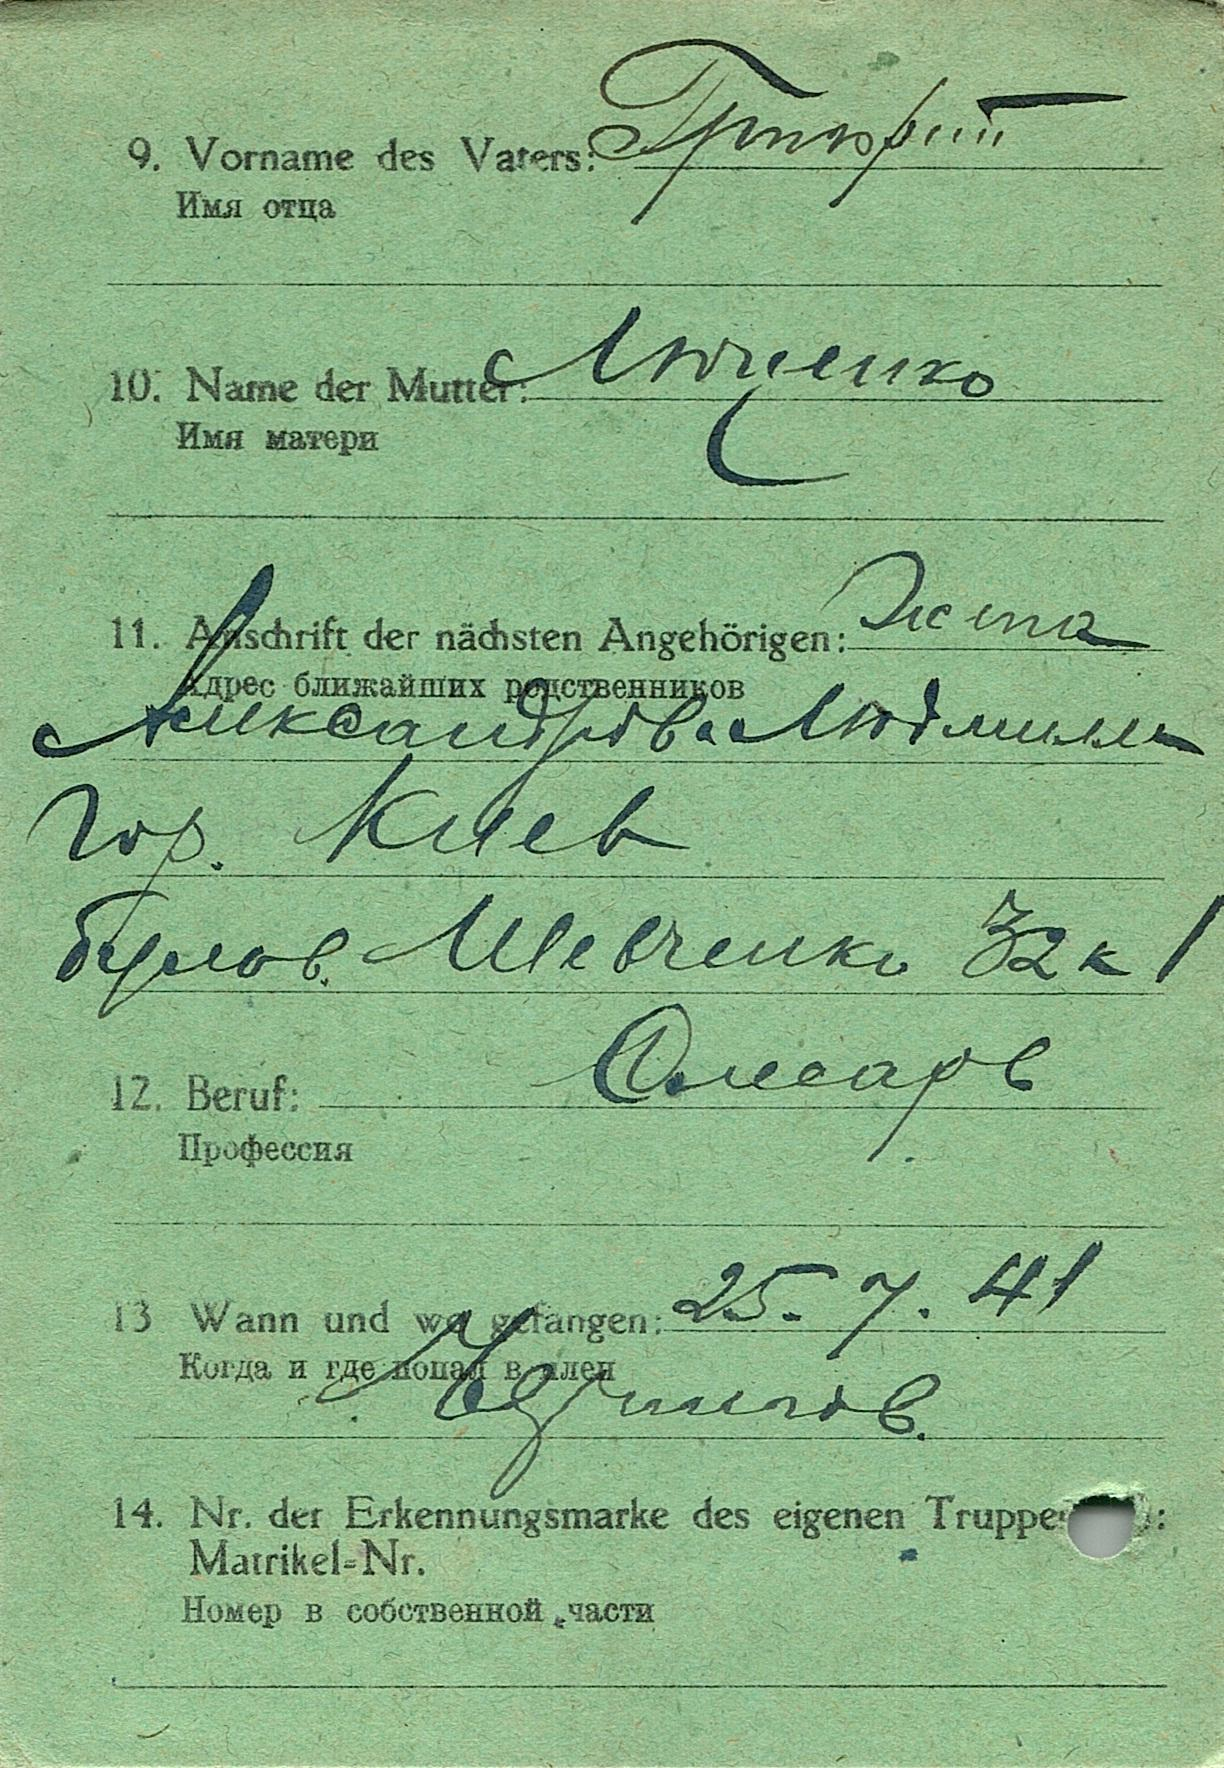 9. Vorname des Vaters: Григорий
Имя отца
10. Name der Mutter: Луценко
Имя матери
11. Anschrift der nächsten Angehörigen: Жена
Адрес ближайших родственников
Александрова Людмила
гор. Киев
бульв. Шевченко 32 к 1
12. Beruf: Слесарь
Профессия
13 Wann und wo gefangen: 25. 7. 41
Когда и где попал в плен
14. Nr. der Erkennungsmarke des eigenen
Matrikel-Nr.
Номер в собственной части